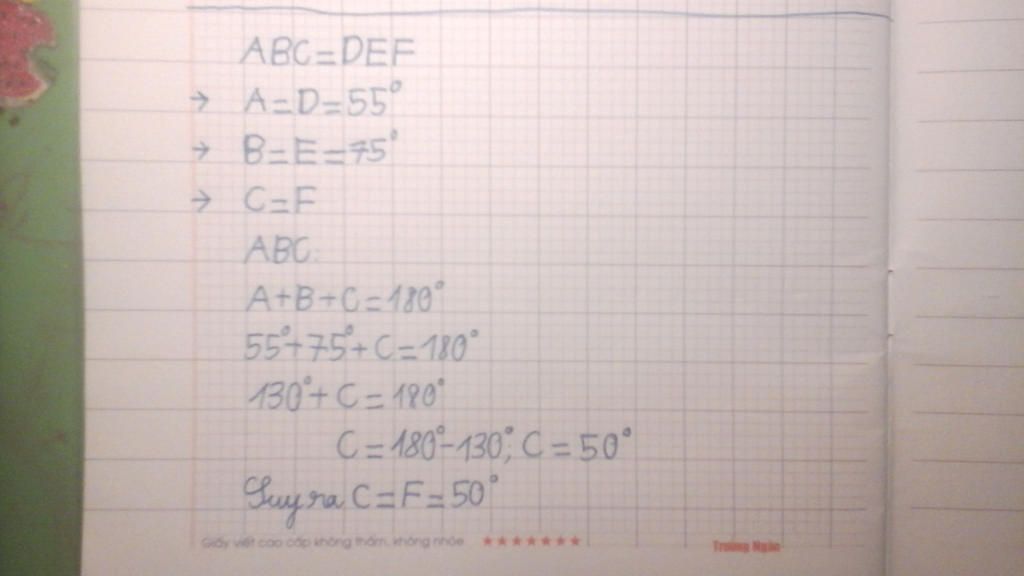 ABC=DEF
→ A=D=55°
→ B=E=75°
→ C=F
ABC:
A+B+C=180°
55°+75°+C=180°
130°+C=180°
C=180°-130°; C=50°
Suy ra C=F=50°
Giấy viết cao cấp không thấm, không nhòe ★★★★★★★ Trường Ngân